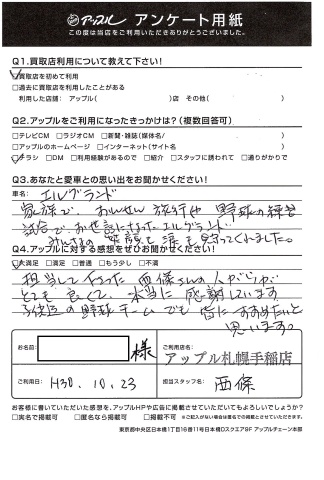 アップル アンケート用紙
この度は当店をご利用いただきありがとうございました。
Q1.買取店利用について教えて下さい!
☑買取店を初めて利用
□過去に買取店を利用したことがある
利用した店舗: アップル( )店 その他( )
Q2.アップルをご利用になったきっかけは?(複数回答可)
□テレビCM □ラジオCM □新聞・雑誌(媒体名/ )
□アップルのホームページ □インターネット(サイト名 )
☑チラシ □DM □利用経験があるので □紹介 □スタッフに誘われて □通りがかりで
Q3.あなたと愛車との思い出をお聞かせください!
車名: エルグランド
家族で、おんせん旅行や野球の練習
試合で、お世話になったエルグランド。
みんなの笑顔と涙も見守ってくれました。
Q4.アップルに対する感想をぜひお聞かせください!
☑大満足 □満足 □普通 □もう少し □不満
担当して下さった西條さんの人がらが
とても良くて、本当に感謝しています
子供達の野球チームでも皆にすすめたいと
思います。
お名前: 様
ご利用店名: アップル札幌手稲店
ご利用日: H30.10.23
担当スタッフ名: 西條
お客様に書いていただいた感想を、アップルHPや広告に掲載させていただいてもよろしいでしょうか?
□実名で掲載可 □匿名なら掲載可 □掲載不可 ※ご記入がない場合は匿名での掲載とさせていただきます。
東京都中央区日本橋1丁目16番11号日本橋Dスクエア9F アップルチェーン本部